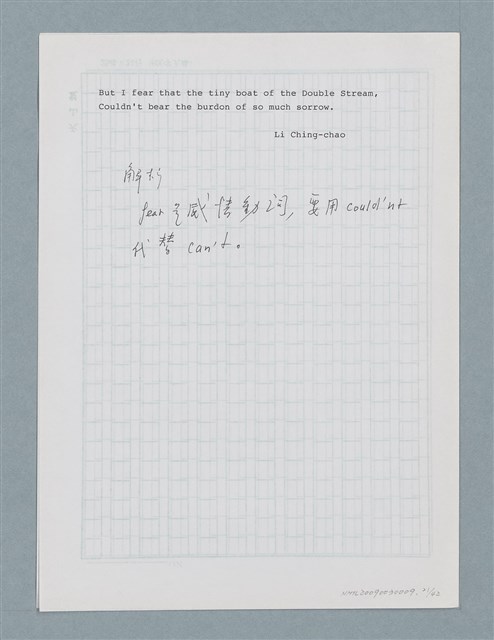 But I fear that the tiny boat of the Double Stream,
Couldn't bear the burdon of so much sorrow.
Li Ching-chao
解析
fear是感情動词, 要用 could'nt
代替 can't。